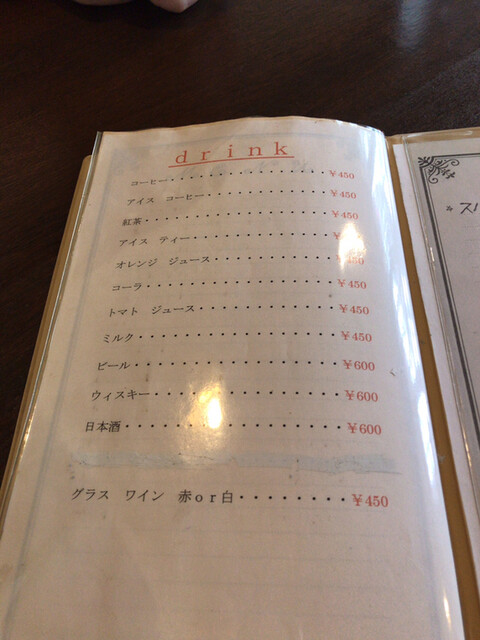 drink
コーヒー・・・・・・・・・・・・・・・・・・¥450
アイス コーヒー・・・・・・・・・・・・・・¥450
紅茶・・・・・・・・・・・・・・・・・・・・¥450
アイス ティー・・・・・・・・・・・・・・・
オレンジ ジュース・・・・・・・・・・・・
コーラ・・・・・・・・・・・・・・・・・・・¥450
トマト ジュース・・・・・・・・・・・・・・¥450
ミルク・・・・・・・・・・・・・・・・・・・¥450
ビール・・・・・・・・・・・・・・・・・・・¥600
ウィスキー・・・・・・・・・・・・・・・・・¥600
日本酒・・・・・・・・・・・・・・・・・・・¥600
グラス ワイン 赤or白・・・・・・・・¥450